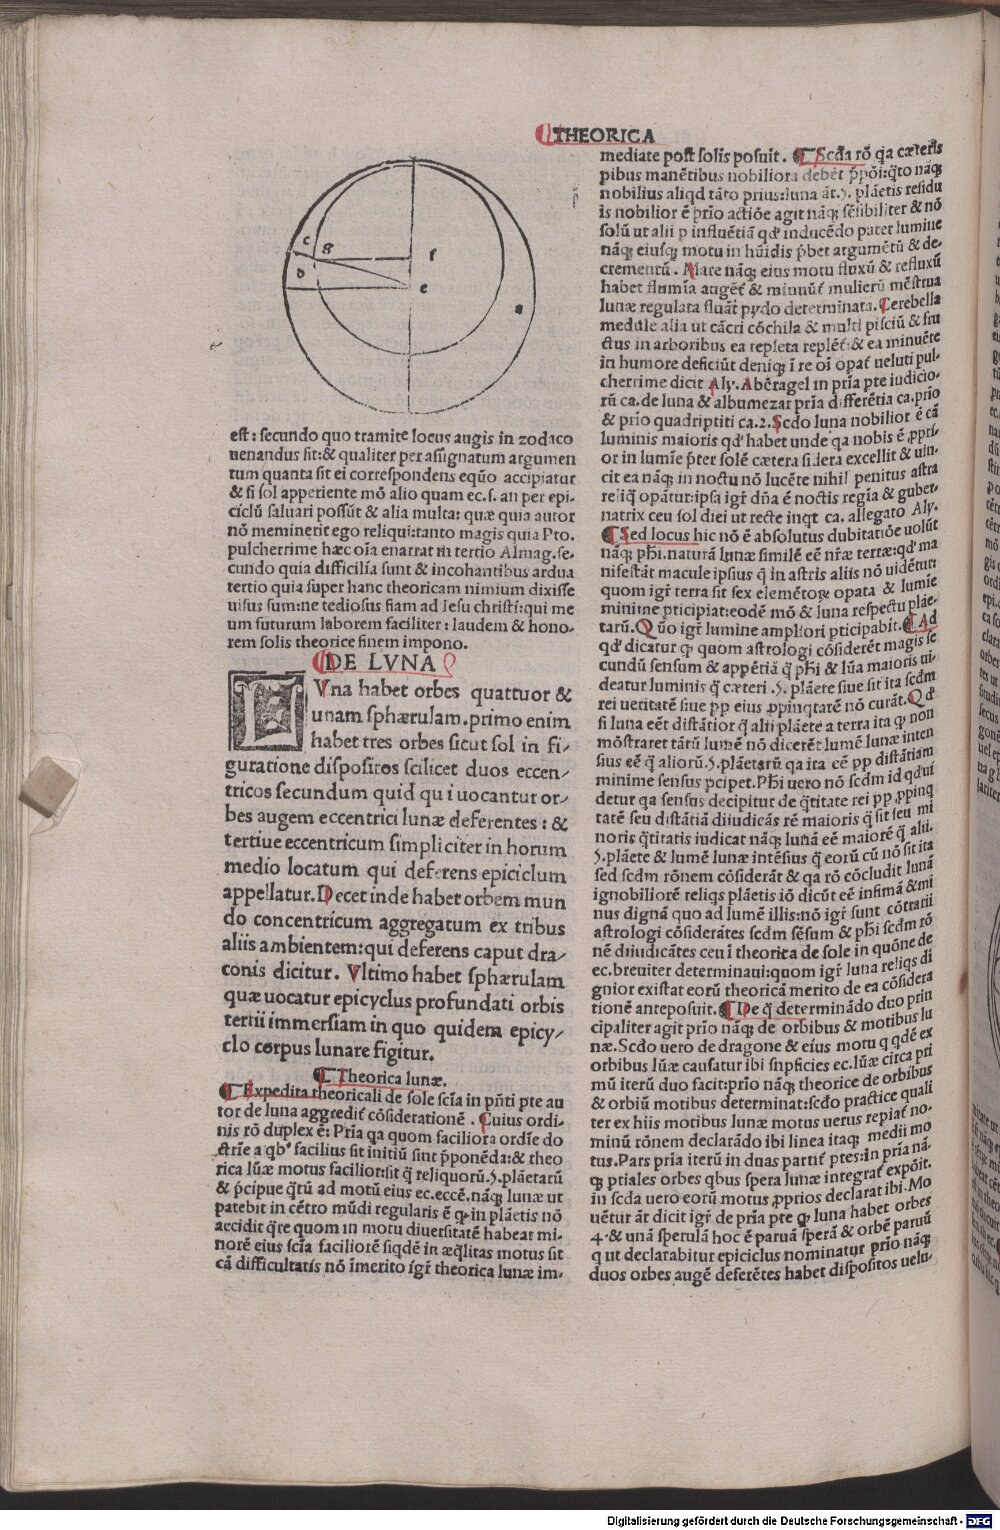 THEORICA
c
g
f
b
e
a
est: secundo quo tramite locus augis in zodaco
uenandus sit:& qualiter per assignatum argumen
tum quanta sit ei correspondens eq̄uo accipiatur
& si sol apperiente mō alio quam ec.s. an per epi,
ciclū saluari possūt & alia multa: quæ quia autor
nō meminerit ego reliqui:tanto magis quia Pto.
pulcherrime hæc oīa enarrat in tertio Almag.se,
cundo quia difficilia sunt & incohantibus ardua
tertio quia super hanc theoricam nimium dixisse
uisus sum:ne tediosus fiam ad Iesu christi:qui me
um futurum laborem faciliter: laudem & hono,
rem solis theorice finem impono.
DE LVNA
LVna habet orbes quattuor &
unam sphærulam.primo enim
habet tres orbes sicut sol in fi,
guratione dispositos scilicet duos eccen,
tricos secundum quid qui uocantur or,
bes augem eccentrici lunæ deferentes: &
tertiue eccentricum simpliciter in horum
medio locatum qui deferens epiciclum
appellatur.Decet inde habet orbem mun
do concentricum aggregatum ex tribus
aliis ambientem:qui deferens caput dra,
conis dicitur. Vltimo habet sphærulam
quæ uocatur epicyclus profundati orbis
tertii immersiam in quo quidem epicy,
clo corpus lunare figitur.
Theorica lunæ.
Expedita theoricali de sole scīa in pn̄ti pte au
tor de luna aggredit̄ cōsiderationē. Cuius ordi,
nis rō duplex ē: Pria qa quom faciliora ordīe do
ctrīe a qbꝰ facilius sit initiū sint p̄ponēda:& theo
rica lūæ motus facilior:sit q̄ reliquorū.5.plāetarū
& p̄cipue q̄tū ad motū eius ec.eccē.nāq; lunæ ut
patebit in cētro mūdi regularis ē qꝫ in plāetis nō
accidit q̄re quom in motu diuersitatē habeat mi,
norē eius scīa faciliorē siqdē in æq̄litas motus sit
cā difficultatis nō īmerito igr̄ theorica lunæ im,
mediate post solis posuit. Scda rō q̄a cæteris
pibus manētibus nobiliora debēt p̄pōi:q̄to nāq;
nobilius aliqd tāto prius:luna āt.5. plāetis residu
is nobilior ē p̄rio actiōe agit nāq; sēsibiliter & nō
solū ut alii p influētiā qd' inducēdo patet lumine
nāq; eiusq; motu in hūidis p̄bet argumētū & de,
crementū. Mare nāq; eius motu fluxū & refluxū
habet flumīa augēt̄ & minuūt̄ mulierū mēstrua
lunæ regulata fluāt̄ pydo determinata. Cerebella
medule alia ut cācri cōchila & multi pisciū & fru
ctus in arboribus ea repleta replēt̄:& ea minuēte
in humore deficiūt deniq; ī re oī opat̄ ueluti pul,
cherrime dicit Aly. Abēragel in prīa pte iudicio,
rū ca.de luna & albumezar prīa differētia ca.prio
& prio quadriptiti ca.2.Scdo luna nobilior ē cā
luminis maioris qd' habet unde qa nobis ē ꝓpri,
or in lumīe p̄ter solē cætera sidera excellit & uin,
cit ea nāq; in noctu nō lucēte nihil penitus astra
reliq opātur:ipsa igr̄ dn̄a ē noctis regīa & gubet,
natrix ceu sol diei ut recte inqt ca. allegato Aly.
Sed locus hic nō ē absolutus dubitatiōe uolūt
nāq; phī.naturā lunæ similē eē nr̄æ terræ:qd' ma
nifestāt macule ipsius q̄ in astris aliis nō uidētur:
quom igr̄ terra sit sex elemētoꝝ opata & lumīe
minime pticipiat:eodē mō & luna respectu plāe,
tarū. Qūo igr̄ lumine ampliori pticipabit. Ad
qd' dicatur qꝫ quom astrologi cōsiderēt magis se
cundū sensum & appētiā q̄ phī & lūa maioris ui,
deatur luminis q̄ cæteri .5. plāete siue sit ita scdm
rei ueritatē siue ꝓp eius ꝓpinqtatē nō curāt. Qd'
si luna eēt distātior q̄ alii plāete a terra ita qꝫ non
mōstraret tātū lumē nō dicerēt lumē lunæ inten
sius eē q̄ aliorū.5.plāetarū qa ita eē pp distātiam
minime sensus pcipet.Phī uero nō scdm id qd'ui
detur qa sensus decipitur de q̄titate rei pp ꝓpinq
tatē seu distātiā diiudicās rē maioris q̄ sit seu mi
noris q̄titatis iudicat nāq; lunā eē maiorē q̄ alii.
5.plāete & lumē lunæ intēsius q̄ eorū cū nō sit ita
sed scdm rōnem cōsiderāt & qa rō cōcludit lunā
ignobiliorē reliqs plāetis iō dicūt eē infimā & mi
nus dignā quo ad lumē illis:nō igr̄ sunt cōtrarii
astrologi cōsiderātes scdm sēsum & phī scdm rō
nē diiudicātes ceu ī theorica de sole in quōne de
ec.breuiter determinaui:quom igr̄ luna reliqs di
gnior existat eorū theoricā merito de ea cōsidera
tionē anteposuit. De q̄ determināndo duo prin
cipaliter agit prio nāq; de orbibus & motibus lu
næ.Scdo uero de dragone & eius motu q qdē ex
orbibus lūæ causatur ibi supficies ec.lūæ circa pri
mū iterū duo facit:prio nāq; theorice de orbibus
& orbiū motibus determinat:scdo practice quali
ter ex hiis motibus lunæ motus uerus repiat̄ no,
minū rōnem declarādo ibi linea itaq; medii mo
tus.Pars pria iterū in duas partit̄ ptes:in pria nā,
q; ptiales orbes qbus spera lunæ integrat̄ expōit.
in scda uero eorū motus ꝓprios declarat ibi.Mo
uētur āt dicit igr̄ de pria pte qꝫ luna habet orbes
4.& unā sperulā hoc ē paruā sperā & orbē paruū
q ut declarabitur epiciclus nominatur prio nāq;
duos orbes augē deferētes habet dispositos uelu,
Digitalisierung gefördert durch die Deutsche Forschungsgemeinschaft - DFG